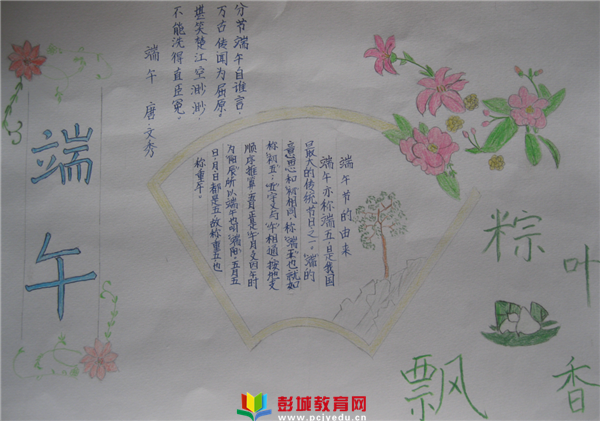 端午
分节端午自谁言，
万古传闻为屈原。
堪笑楚江空渺渺，
不能洗得直臣冤。
端午 唐·文秀
端午节的由来
端午亦称端五，日是我国
最大的传统节日之一，"端"的
意思和"初"相同，称"端五"也就如
称"初五"；"五"字又与"午"相通，按地支
顺序推算，五月正是"午"月，又因午时
为"阳辰"，所以端午也叫"端阳"，五月五
日，月日都是五，故称重五，也
称重午。
粽
叶
飘
香
彭城教育网
www.pcjyedu.cn